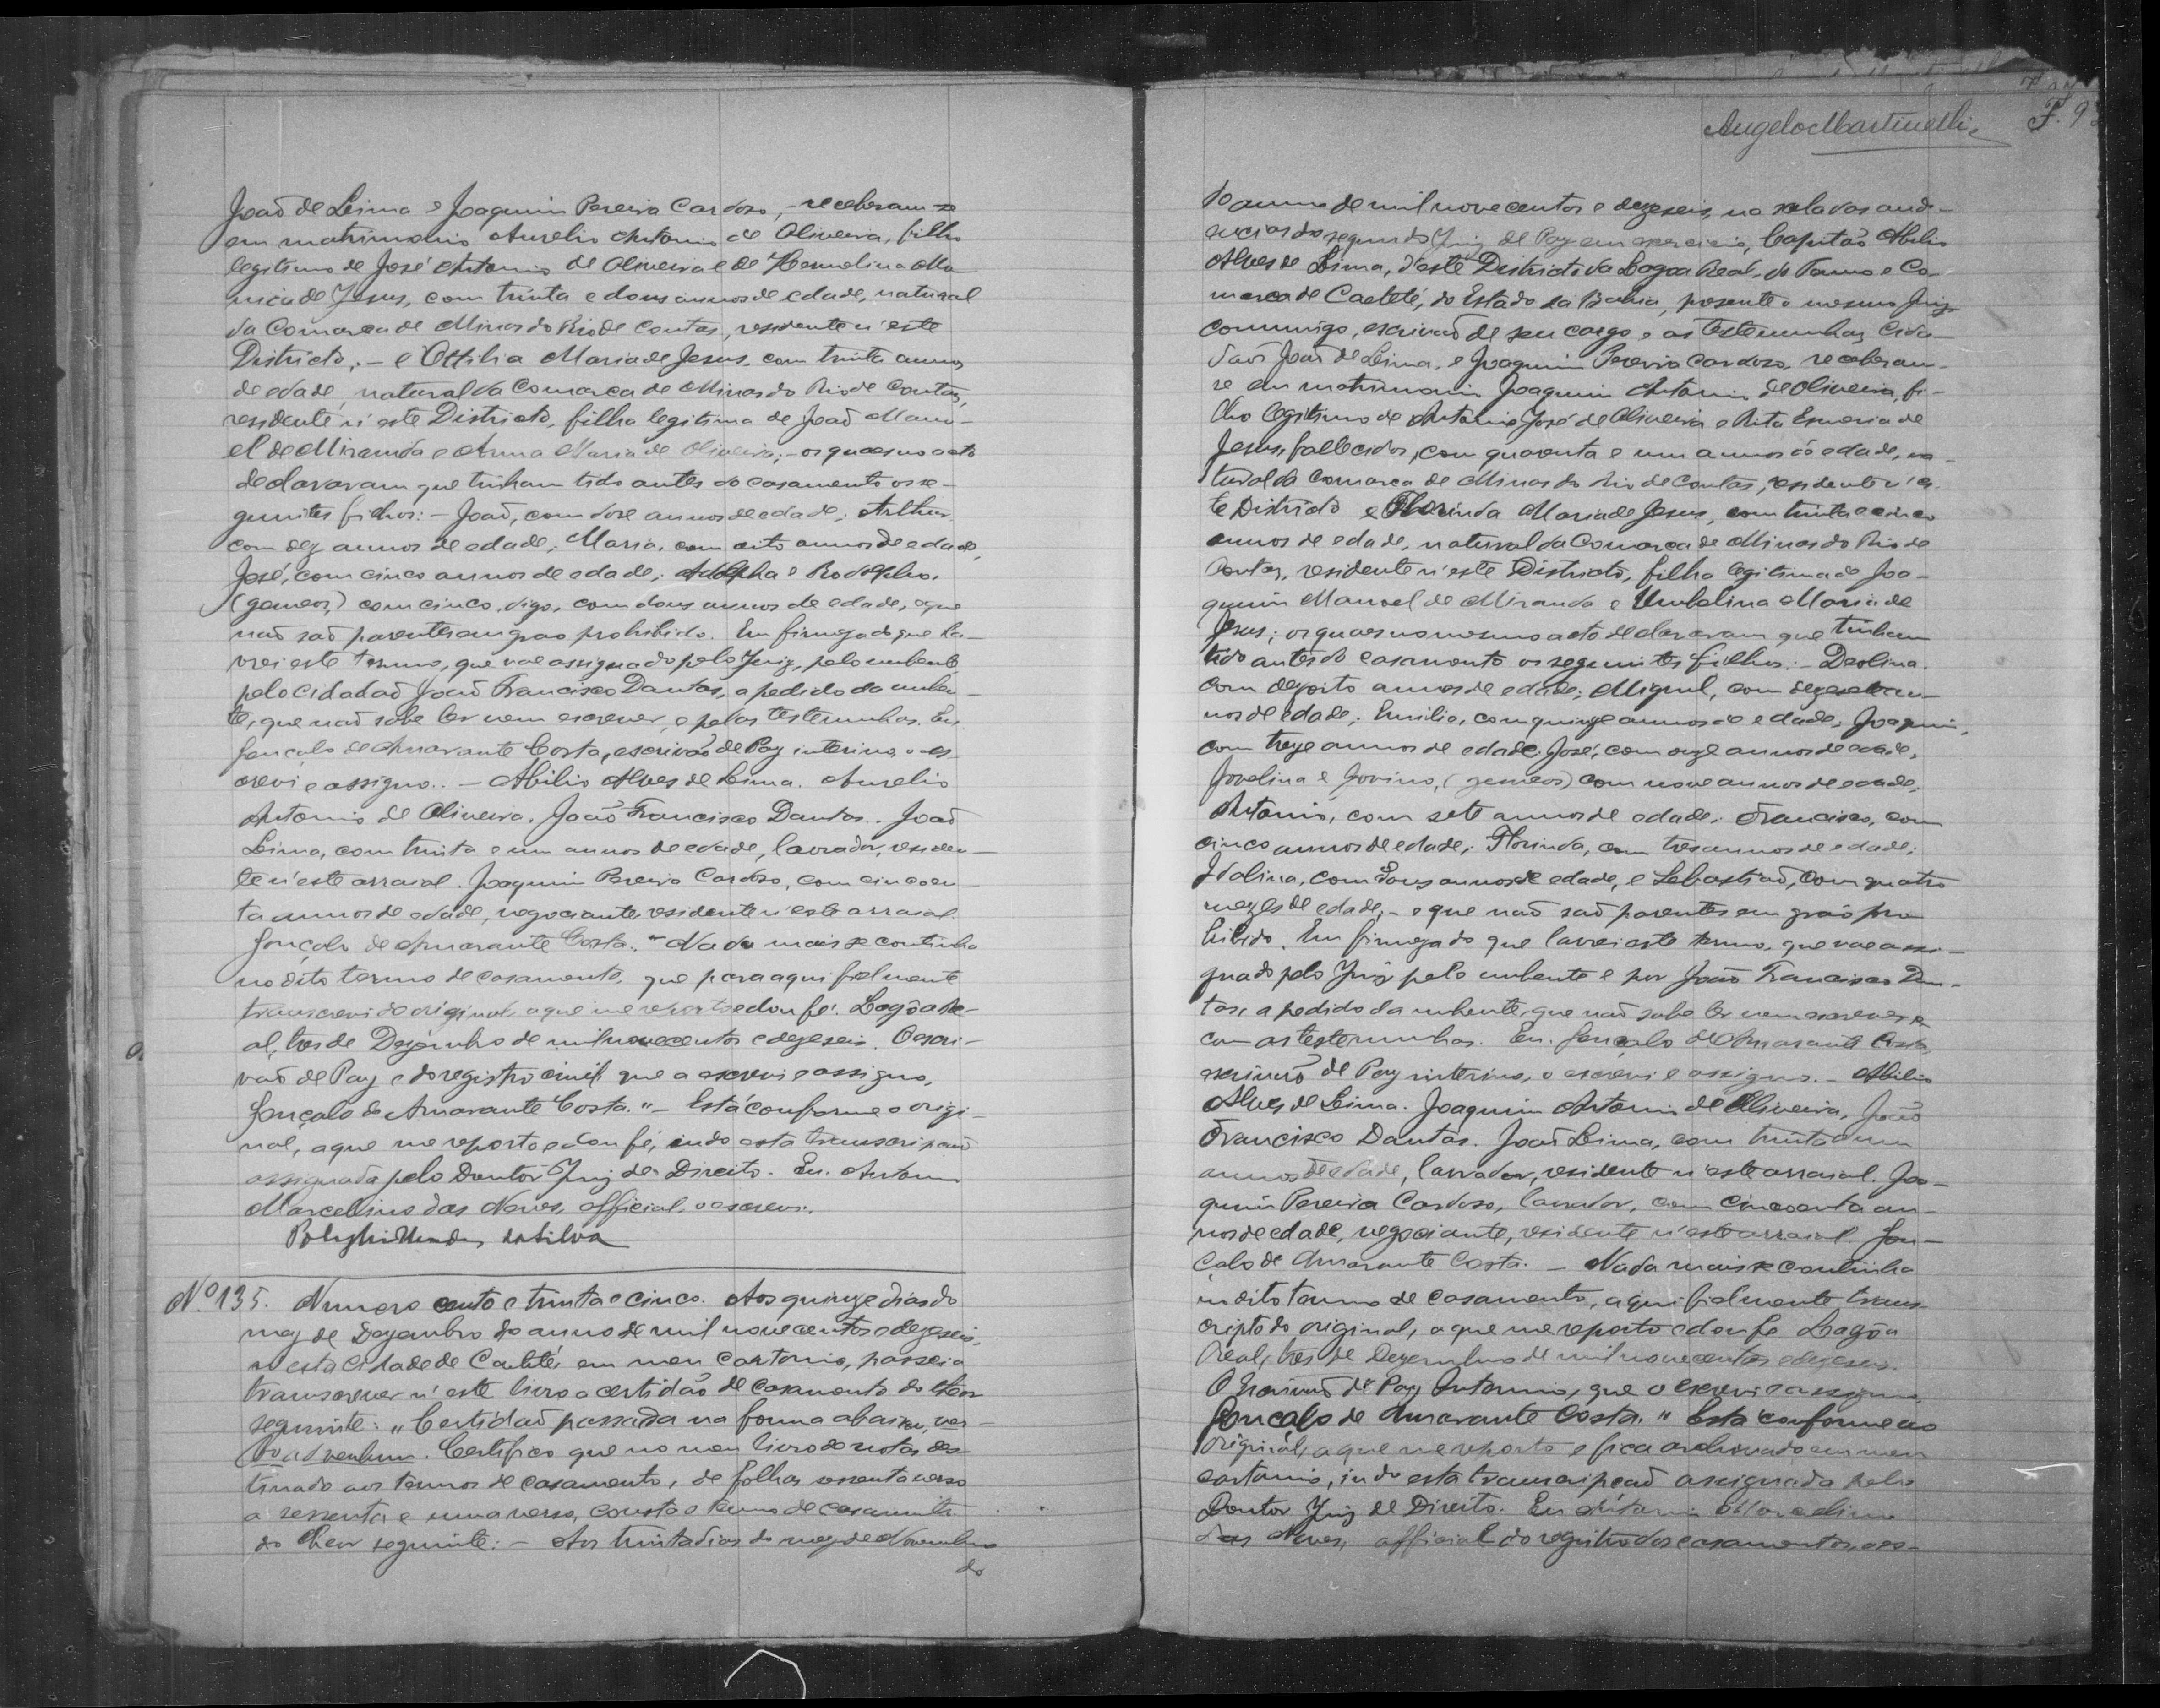 João de Leima e Joaquim Pereira Cardoso, - receberam-se
em matrimonio Aurelio Antonio de Oliveira, filho
legitimo de José Antonio de Oliveira e de Hermelina Ma
ria de Jesus, com trinta e dous annos de edade, natural
da Comarca de Minas do Rio de Contas, residente n'este
Districto; - e Ottilia Maria de Jesus, com trinta annos
de edade, natural da Comarca de Minas do Rio de Contas,
residente n'este Districto, filha legitima de João Mano-
el de Miranda e Anna Maria de Oliveira; - os quaes no acto
declararam que tinham tido antes do casamento os se-
guintes filhos: - João, com dose annos de edade; Arthur
com dez annos de edade; Maria, com oito annos de edade,
José, com cinco annos de edade; Adolpha e Rodolpho,
(gemeos) com cinco, digo, com dous annos de edade, e que
não são parentes em grao prohibido. Em firmeza do que la-
vrei este termo, que vae assignado pelo Juiz, pelo nubente,
pelo cidadão João Francisco Dantas, a pedido da nuben-
te, que não sabe ler nem escrever, e pelas testemunhas. Eu
Gonçalo de Amarante Costa, escrivão de Paz interino, o es-
crevi e assigno. - Abilio Alves de Leima. Aurelio
Antonio de Oliveira. João Francisco Dantas. João
Leima, com trinta e um annos de edade, lavrador, residen-
te n'este arraial. Joaquim Pereira Cardoso, com cincoen-
ta annos de edade, negociante, residente n'este arraial.
Gonçalo de Amarante Costa." Nada mais se continha
no dito termo de casamento, que para aqui fielmente
transcrevi do original, a que me reporto e dou fé. Lagôa Re-
al, tres de Dezembro de mil novecentos e dezeseis. O escri-
vão de Paz e do registro civil que a escrevi e assigno,
Gonçalo de Amarante Costa." - Está conforme o origi-
nal, a que me reporto e dou fé, indo esta transcripção
assignada pelo Doutor Juiz de Direito. Eu. Antonio
Marcellino das Neves, official, o escrevi.
da Silva
Nº 135. Numero cento e trinta e cinco. Aos quinze dias do
mez de Dezembro do anno de mil novecentos e dezeseis,
n'esta Cidade de Caeteté, em meu Cartorio, passei a
transcrever n'este livro a certidão de casamento do theor
seguinte: "Certidão passada na forma abaixo, ver-
bo ad verbum. Certifico que no meu livro de notas des-
tinado aos termos de casamento, de folhas sessenta verso
a sessenta e uma verso, consta o termo de casamento
do theor seguinte: - Aos trinta dias do mez de Novembro
do
Angelo Martinelli
F. 9
do anno de mil novecentos e dezeseis, na sala das audi-
encias do segundo Juiz de Paz em exercicio, Capitão Abilio
Alves de Leima, d'este Districto da Lagoa Real, do Termo e Co-
marca de Caeteté, do Estado da Bahia, presente o mesmo Juiz
commigo, escrivão de seu cargo e as testemunhas, Cida-
dãos João de Leima, e Joaquim Pereira Cardoso, receberam-
se em matrimonio Joaquim Antonio de Oliveira, fi-
lho legitimo de Antonio José de Oliveira e Rita Esmeria de
Jesus, fallecidos, com quarenta e um annos de edade, na-
tural da Comarca de Minas do Rio de Contas, residente n'es-
te Districto e Florinda Maria de Jesus, com trinta e cinco
annos de edade, natural da Comarca de Minas do Rio de
Contas, residente n'este Districto, filha legitima de Joa-
quim Manoel de Miranda e Umbelina Maria de
Jesus; os quaes no mesmo acto declararam que tinham
tido antes do casamento os seguintes filhos: - Deolina.
com dezoito annos de edade; Miguel, com dezesete an-
nos de edade; Emilia, com quinze annos de edade; Joaquim,
com treze annos de edade; José, com onze annos de edade,
Jovelina e Jovino, (gemeos) com nove annos de edade;
Antonio, com sete annos de edade; Francisco, com
cinco annos de edade; Florinda, com tres annos de edade;
Idalina, com dous annos de edade, e Sebastião, com quatro
mezes de edade; - e que não são parentes em gráo pro
hibido. Em firmeza do que lavrei este termo, que vae assi-
gnado pelo Juiz pelo nubente e por João Francisco Dan-
tas, a pedido da nubente, que não sabe ler nem escrever e
com as testemunhas. Eu. Gonçalo de Amarante Costa,
escrivão de Paz interino, o escrevi e assigno. - Abilio
Alves de Leima. Joaquim Antonio de Oliveira, João
Francisco Dantas. João Leima, com trinta e um
annos de edade, lavrador, residente n'este arraial. Joa-
quim Pereira Cardoso, lavrador, com cincoenta an-
nos de edade, negociante, residente n'este arraial. Gon-
çalo de Amarante Costa. - Nada mais se continha
no dito termo de casamento, aqui fielmente trans-
cripto do original, a que me reporto e dou fe Lagôa
Real, tres de Dezembro de mil novecentos e dezeseis.
O Escrivão de Paz Interino, que o escrevi e assigno,
Gonçalo de Amarante Costa." Está conforme ao
original, a que me reporto e fica archivado em meu
cartorio, indo esta transcripção assignada pelo
Doutor Juiz de Direito. Eu Antonio Marcellino
das Neves, official do registro dos casamentos, o es-